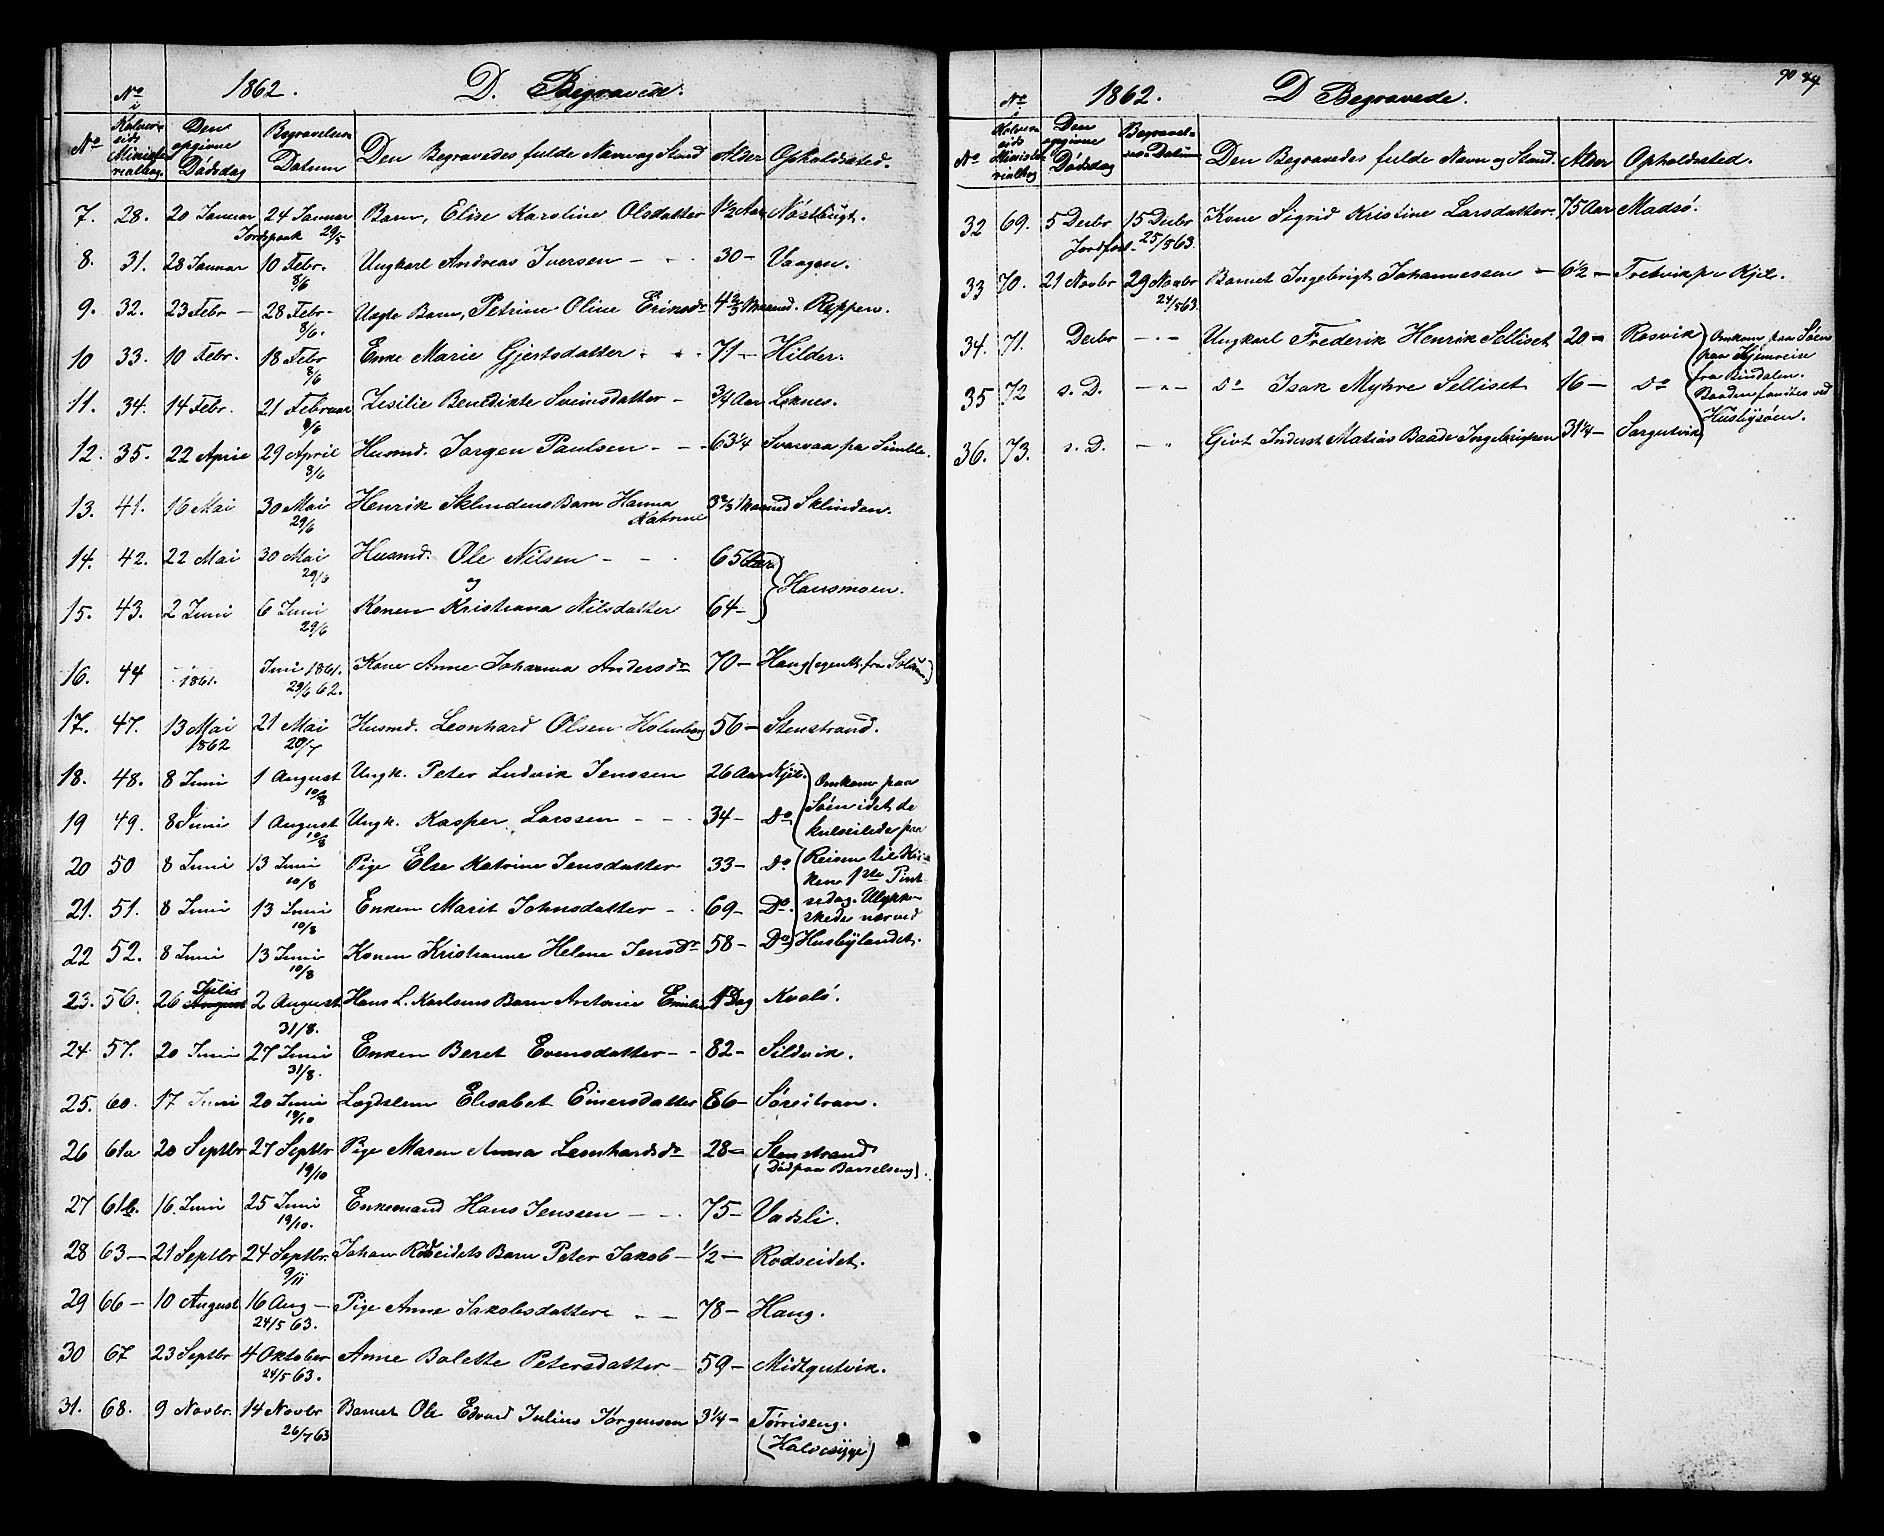 1862. D. Begravede.
No No i Kolvereids Ministerialbog. Den opgivne Dødsdag Begravelsens Datum Den Begravedes fulde Navn og Stand Alder Opholdssted.
7. 28. 20 Januar 24 Januar Barn, Elise Karoline Olsdatter 1½ Aar Nøstbugt.
Jordspaak 29/5
8. 31. 28 Januar 10 Febr. Ungkarl Andreas Iversen - - 30 - Vaagan.
8/6
9. 32. 23 Febr - 28 Febr - Uægte Barn, Petrine Oline Eriksdr 4 2/3 Maaned. Reppen.
8/6.
10 33. 10 Febr. 18 Febr Enke Marie Gjertsdatter - - 71 - Hilder.
8/6
11. 34. 14 Febr. 21 Februar Zisilie Benedikte Sveinsdatter - 3/4 Aar Leknes.
8/6
12. 35. 22 April 29 April Husmd. Jørgen Paulsen - - - 63 1/4 Svarvaa pr Simle.
8/6
13. 41. 16 Mai 30 Mai Henrik Sklindens Barn Hanna Katrine 3 2/3 Maaned Sklinden.
29/6
14. 42. 22 Mai 30 Mai Husmd. Ole Nilsen - - - 65 Aar
29/6 og Hansmoen.
15. 43. 2 Juni 6 Juni Konen Kristiana Nilsdatter 64 -
29/6
16. 44 - 1861. Juni 1861. Kone Anne Johanna Andersdr 70 - Haug (egentl. fra
29/6 62.
17. 47. 13 Mai 1862 21 Mai Husmd. Leonhard Olsen Holmberg 56 - Stenstrand.
20/7
18. 48. 8 Juni 1 August Ungk. Peter Ludvik Jenssen 26 Aar Kjil.
10/8
19 49. 8 Juni 1 August Ungk. Kasper Larssen - - - 34 - Do.
10/8
20 50 8 Juni 13 Juni Pige Else Katrine Jensdatter 33 - Do
10/8
21. 51. 8 Juni 13 Juni Enken Marit Johnsdatter - - 69 - Do.
10/8
22 52. 8 Juni 13 Juni Konen Kristianne Helene Jensdr 58 - Do
10/8
Omkom paa Søen idet de kulseilede paa Reisen til Kirken 1ste Pintsedag. Ulykken skede nærved Husbylandet.
23. 56. 26 Juli 2 August Hans L. Karlsens Barn Antonie Emilie 1 Dag Kvalø.
31/8.
24 57. 20 Juni 27 Juni Enken Beret Evensdatter - - 82 - Sildvik.
31/8.
25. 60. 17 Juni 20 Juni Lægdslem Elisabet Einersdatter 86 - Sørestran.
19/10
26 61a 20 Septbr 27 Septbr Pige Maren Anna Leonhardsdr 28 - Stenstrand
19/10 (Død paa Barselseng).
27 61b. 16. Juni 25 Juni Enkemand Hans Jenssen - - - 75 - Vadsli.
19/10.
28 63 - 21 Septbr 24 Septbr. Johan Rødseidets Barn Peter Jakob - 1/2 - Rodseidet.
9/11
29 66 - 10 August 16 Aug - Pige Anne Jakobsdatter - - 78 - Haug.
24/5 63.
30 67 23 Septbr 4 Oktober Anne Bolette Petersdatter - 59 - Midtgutvik.
24/5 63.
31. 68. 9 Novbr. 14 Novbr Barnet Ole Edvard Julius Jørgensen 3 1/4 - Tørriseng.
26/7 63 (Halssyge)
1862. D Begravede. 90 84
No No i Kolvereids Ministerialbog Den opgivne Dødsdag Begravelsens Datum Den Begravedes fulde Navn og Stand. Alder Opholdssted.
32 69. 5 Decbr 15 Decbr Kone Sigrid Kristine Larsdatter. 75 Aar Madsø.
Jordfæst - 25/5 63.
33 70. 21 Novbr 29 Novbr Barnet Ingebrigt Johannessen - 6½ - Tretvik pr Kjil.
24/5 63.
34. 71. Decbr - " - Ungkarl Frederik Henrik Selliset 20 - Rosvik
35 72 s. D. - " - do Isak Myhre Selliset 16 - do
36. 73. s. D. - " Givt Inderst Matias Baade Ingebrigtsen 31 1/4 - Sørgutvik
Omkom paa Søen paa Hjemreise fra Rindalen. Baaden fandtes ved Husbysøen.